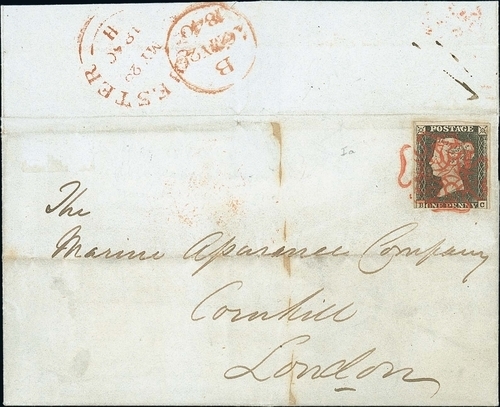 ESTER
1840
H
B
1840
POSTAGE
ONE PENNY
C
The
Marine Aſsurance Company
Cornhill
London